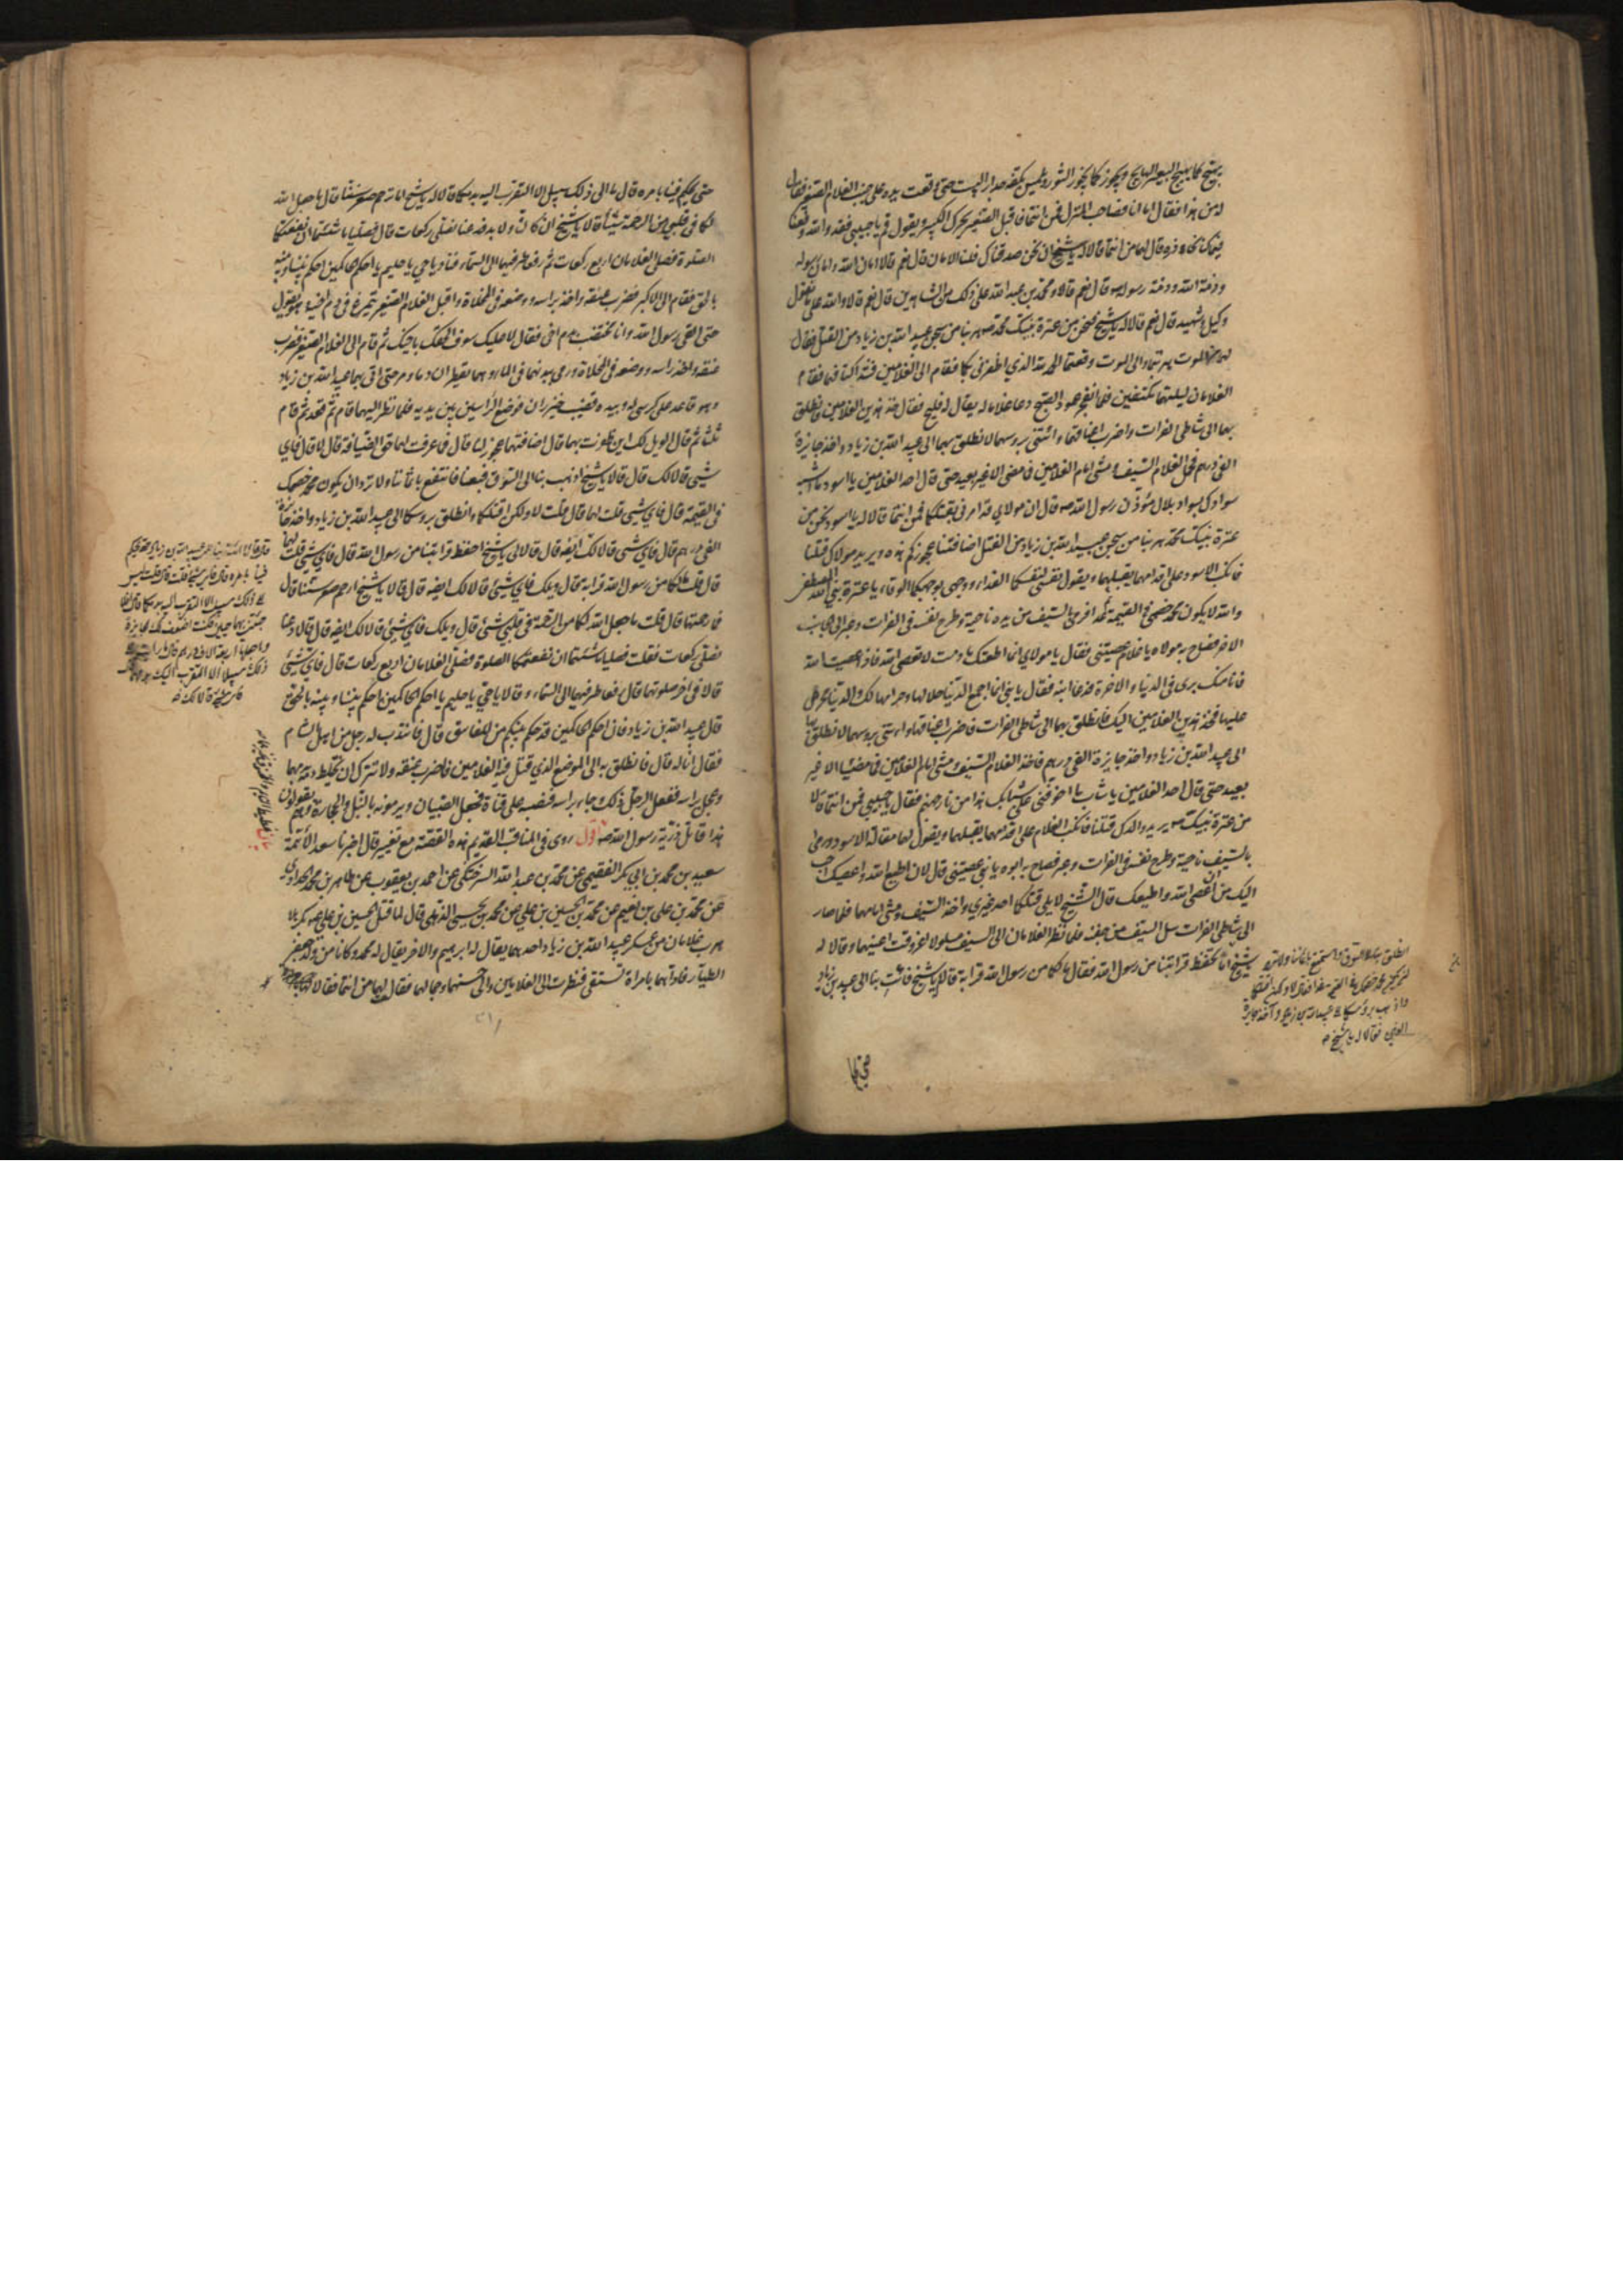 يهيج كما يهيج البعير الهايج ويخور كما يخور الثور ويلمس بكفه جدار البيت حتى وقعت يده على جنب الغلام الصغير فقال
له من هذا فقال اما انا فصاحب المنزل فمن انتما فاقبل الصغير يحرك الكبير ويقول قم يا حبيبي فقد والله وقعنا
فيما كنا نحاذره قال لهما من انتما قالا له يا شيخ ان نحن صدقناك فلنا الامان قال نعم قالا امان الله وامان رسوله
وذمة الله وذمة رسوله قال نعم قالا ومحمد بن عبد الله على ذلك من الشاهدين قال نعم قالا والله على ما نقول
وكيل وشهيد قال نعم قالا له يا شيخ فنحن من عترة نبيك محمد هربنا من سجن عبيد الله بن زياد من القتل فقال
لهما من الموت هربتما والى الموت وقعتما الحمد لله الذي اظفرني بكما فقام الى الغلامين فشد اكتافهما فقام
الغلامان ليلتهما مكتفين فلما انفجر عمود الصبح دعا غلاما له يقال له فليح فقال خذ هذين الغلامين فانطلق
بهما الى شاطئ الفرات واضرب اعناقهما وائتني برؤسهما لانطلق بهما الى عبيد الله بن زياد واخذ جايزة
الفي درهم فحمل الغلام السيف ومشى امام الغلامين فما مضى الا غير بعيد حتى قال احد الغلامين يا اسود ما اشبه
سوادك بسواد بلال مؤذن رسول الله ص قال ان مولاي قد امرني بقتلكما فمن انتما قالا له يا اسود نحن من
عترة نبيك محمد هربنا من سجن عبيد الله بن زياد من القتل اضافتنا عجوزكم هذه ويريد مولاك قتلنا
فانكب الاسود على اقدامهما يقبلهما ويقول نفسي لنفسكما الفداء ووجهي لوجهكما الوقاء يا عترة نبي الله المصطفى
والله لا يكون محمد خصمي في القيمة ثم عدا فرمى السيف من يده ناحية وطرح نفسه في الفرات وعبر الى الجانب
الاخر فصاح به مولاه يا غلام عصيتني فقال يا مولاي انما اطعتك ما دمت لا تعصي الله فاذا عصيت الله
فانا منك بري في الدنيا والاخرة فدعا ابنه فقال يا بني انما اجمع الدنيا حلالها وحرامها لك والدنيا محرص
عليها فخذ هذين الغلامين اليك فانطلق بهما الى شاطئ الفرات فاضرب اعناقهما وائتني برؤسهما لانطلق بهما
الى عبيد الله بن زياد واخذ جايزة الفي درهم فاخذ الغلام السيف ومشى امام الغلامين فما مضيا الا غير
بعيد حتى قال احد الغلامين يا شاب ما اخوفني على شبابك هذا من نار جهنم فقال يا حبيبي فمن انتما قالا
من عترة نبيك ص يريد والدك قتلنا فانكب الغلام على اقدامهما يقبلهما ويقول لهما مقالة الاسود ورمى
بالسيف ناحية وطرح نفسه في الفرات وعبر فصاح به ابوه يا بني عصيتني قال لان اطيع الله واعصيك احب
اليك من ان اعصي الله واطيعك قال الشيخ لا يلي قتلكما احد غيري واخذ السيف ومشى امامهما فلما صار
الى شاطئ الفرات سل السيف من جفنه فلما نظر الغلامان الى السيف مسلولا اغرورقت اعينهما وقالا له
يا شيخ اما تحفظ قرابتنا من رسول الله فقال ما لكما من رسول الله قرابة قالا له يا شيخ فائت بنا الى عبيد الله بن زياد
انطلق بنا الى السوق واستمتع باثماننا ولا ترد
ان يكون محمد خصمك في القيمة غدا فقال لا ولكن اقتلكما
واذهب برؤسكما الى عبيد الله بن زياد وآخذ جايزة
الفين فقالا له يا شيخ
حتى يحكم
حتى يحكم فينا بامره قال ما الى ذلك سبيل الا التقرب اليه بدمكما قالا له يا شيخ اما ترحم صغر سننا قال ما جعل الله
لكما في قلبي من الرحمة شيئا قالا يا شيخ ان كان ولا بد فدعنا نصلي ركعات قال فصليا ما شئتما ان نفعتكما
الصلوة فصلى الغلامان اربع ركعات ثم رفعا طرفيهما الى السماء فناديا يا حي يا حليم يا احكم الحاكمين احكم بيننا وبينه
بالحق فقام الى الاكبر فضرب عنقه واخذ براسه ووضعه في المخلاة واقبل الغلام الصغير يتمرغ في دم اخيه وهو يقول
حتى القى رسول الله وانا مختضب بدم اخي فقال لا عليك سوف الحقك باخيك ثم قام الى الغلام الصغير فضرب
عنقه واخذ راسه ووضعه في المخلاة ورمى ببدنهما في الماء وهما يقطران دما ومر حتى اتى بهما عبيد الله بن زياد
وهو قاعد على كرسي له وبيده قضيب خيزران فوضع الراسين بين يديه فلما نظر اليهما قام ثم قعد ثم قام
ثلثا ثم قال الويل لك اين ظفرت بهما قال اضافتهما عجوز لنا قال فما عرفت لهما حق الضيافة قال لا قال فاي
شيء قالا لك قال قالا يا شيخ اذهب بنا الى السوق فبعنا فانتفع باثماننا ولا ترد ان يكون محمد خصمك
في القيمة قال فاي شيء قلت لهما قال قلت لا ولكن اقتلكما وانطلق برؤسكما الى عبيد الله بن زياد واخذ جائزة
الفي درهم قال فاي شيء قالا لك ايضه قال قالا لي يا شيخ احفظ قرابتنا من رسول الله قال فاي شيء قلت لهما
قال قلت ما لكما من رسول الله قرابة قال ويلك فاي شيء قالا لك ايضه قال قالا يا شيخ ارحم صغر سننا قال
فما رحمتهما قال قلت ما جعل الله لكما من الرحمة في قلبي شيء قال ويلك فاي شيء قالا لك ايضه قال قالا دعنا
نصلي ركعات فقلت فصليا ما شئتما ان نفعتكما الصلوة فصلى الغلامان اربع ركعات قال فاي شيء
قالا في اخر صلوتهما قال رفعا طرفيهما الى السماء وقالا يا حي يا حليم يا احكم الحاكمين احكم بيننا وبينه بالحق
قال عبيد الله بن زياد فان احكم الحاكمين قد حكم بينكم من للفاسق قال فانتدب له رجل من اهل الشام
فقال انا له قال فانطلق به الى الموضع الذي قتل فيه الغلامين فاضرب عنقه ولا تترك ان يختلط دمه بدمهما
وعجل براسه ففعل الرجل ذلك وجاء براسه فنصبه على قناة فجعل الصبيان يرمونه بالنبل والحجارة وهم يقولون
هذا قاتل ذرية رسول الله ص اقول روى في المناقب القديم هذه القصة مع تغيير قال اخبرنا سعد الائمة
سعيد بن محمد بن ابي بكر الفقيمي عن محمد بن عبد الله السرختكي عن احمد بن يعقوب عن طاهر بن محمد الحدادي
عن محمد بن علي بن نعيم عن محمد بن الحسين بن علي عن محمد بن يحيى الذهلي قال لما قتل الحسين بن علي ع بكربلا
هرب غلامان من عسكر عبيد الله بن زياد احدهما يقال له ابرهيم والاخر يقال له محمد وكانا من ولد جعفر
الطيار فاذا هما بامراة تستقي فنظرت الى الغلامين والى حسنهما وجمالهما فقالت لهما من انتما فقالا